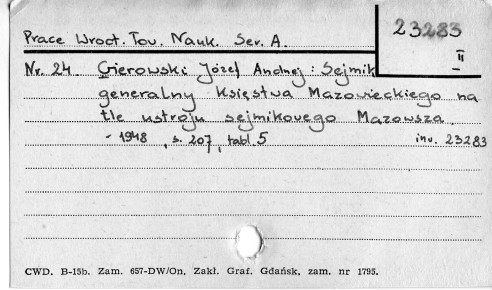 23283
II
Prace Wrocł. Tow. Nauk. Ser. A.
Nr. 24. Gierowski Józef Andrzej: Sejmik
generalny Księstwa Mazowieckiego na
tle ustroju sejmikowego Mazowsza.
- 1948, s. 207, tabl. 5 inv. 23283
CWD. B-15b. Zam. 657-DW/On. Zakł. Graf. Gdańsk, zam. nr 1795.